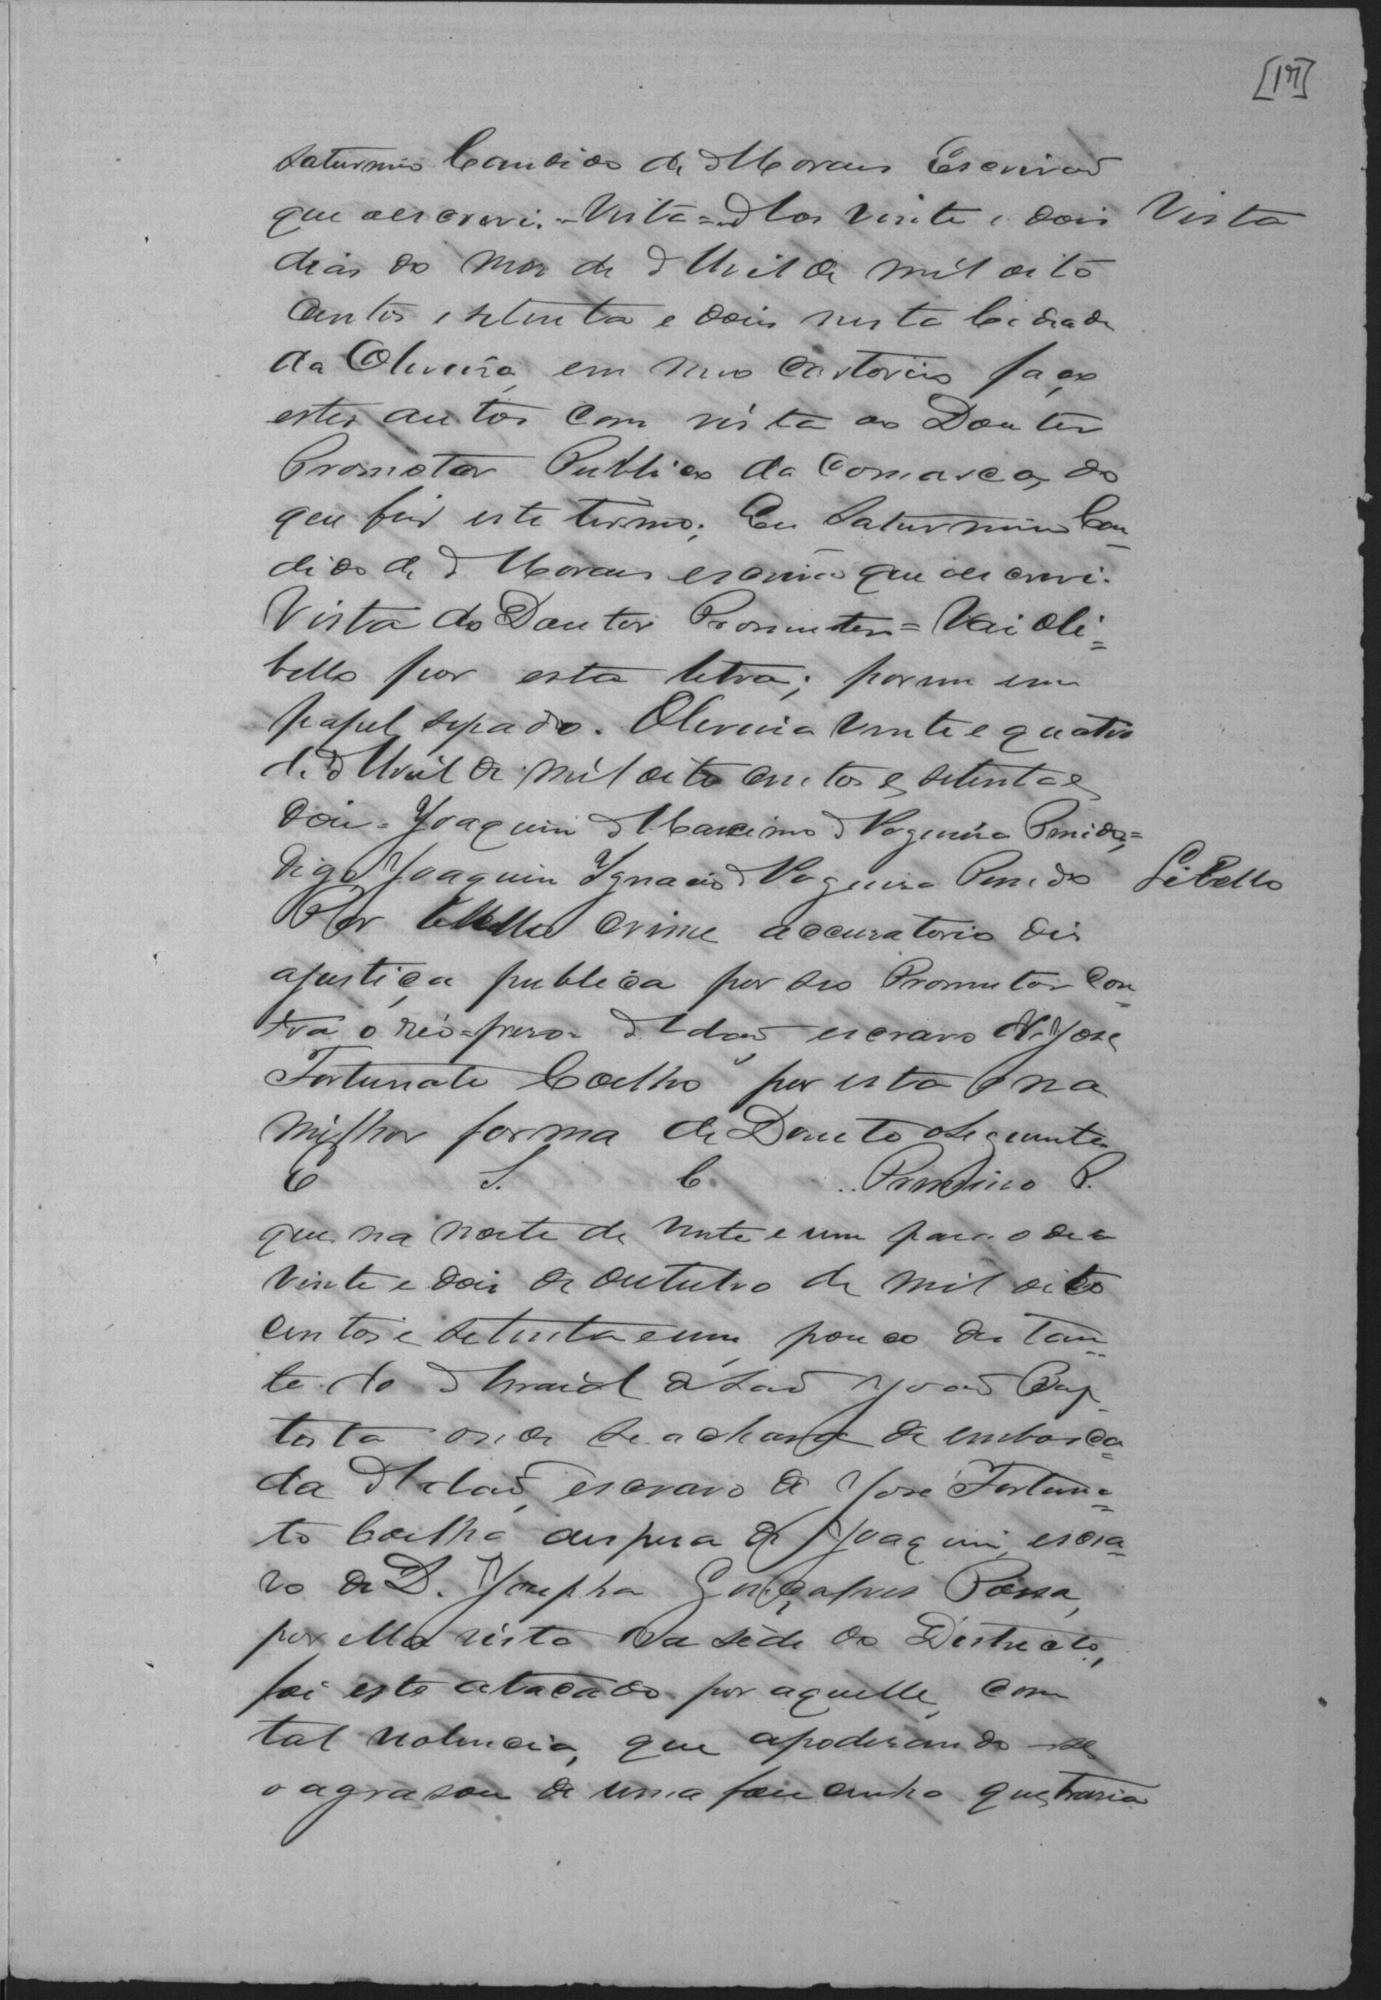 [17]
Saturnino Candido de Moraes Escrivaõ
que o escrevi. = Vista = Aos vinte e dois
Vista
dias do mez de Abril de mil oito
centos e setenta e dois nesta Cidade
da Oliveira, em meo cartorio faço
estes autos com vista ao Doutor
Promotor Publico da Comarca, do
que fiz este termo; Eu Saturnino Can-
dido de Moraes escrivão que o escrevi.
Vista ao Doutor Promutor = Vai o li=
bello por esta letra; porem em
papel separado. Oliveira vinte e quatro
de Abril de mil oito centos e setenta e
dois = Joaquim Maximo Nogueira Penido,=
digo Joaquim Ignacio Nogueira Penido
Libello
Por libello crime accusatorio diz
a justiça publica por seo Promutor con-
tra o réo = preso = Adaõ escravo de José
Fortunato Coelho por esta e na
milhor forma de Direito o seguinte
E S. C. Primeiro P.
que na noite de vinte e um para o dia
vinte e dois de Outubro de mil oito
centos e setenta e um, pouco distan=
te do Arraial de Saõ Joaõ Bap-
tista onde se achava de emboscа=
da Adaõ, escravo de José Fortuna=
to Coelho a espera de Joaquim, escra=
vo de D. Josepha Gonçalves Possa,
por ella vista na séde do Districto,
foi este atacado por aquelle, com
tal violencia, que apoderando-se
o agressor de uma fou cinha que trasia